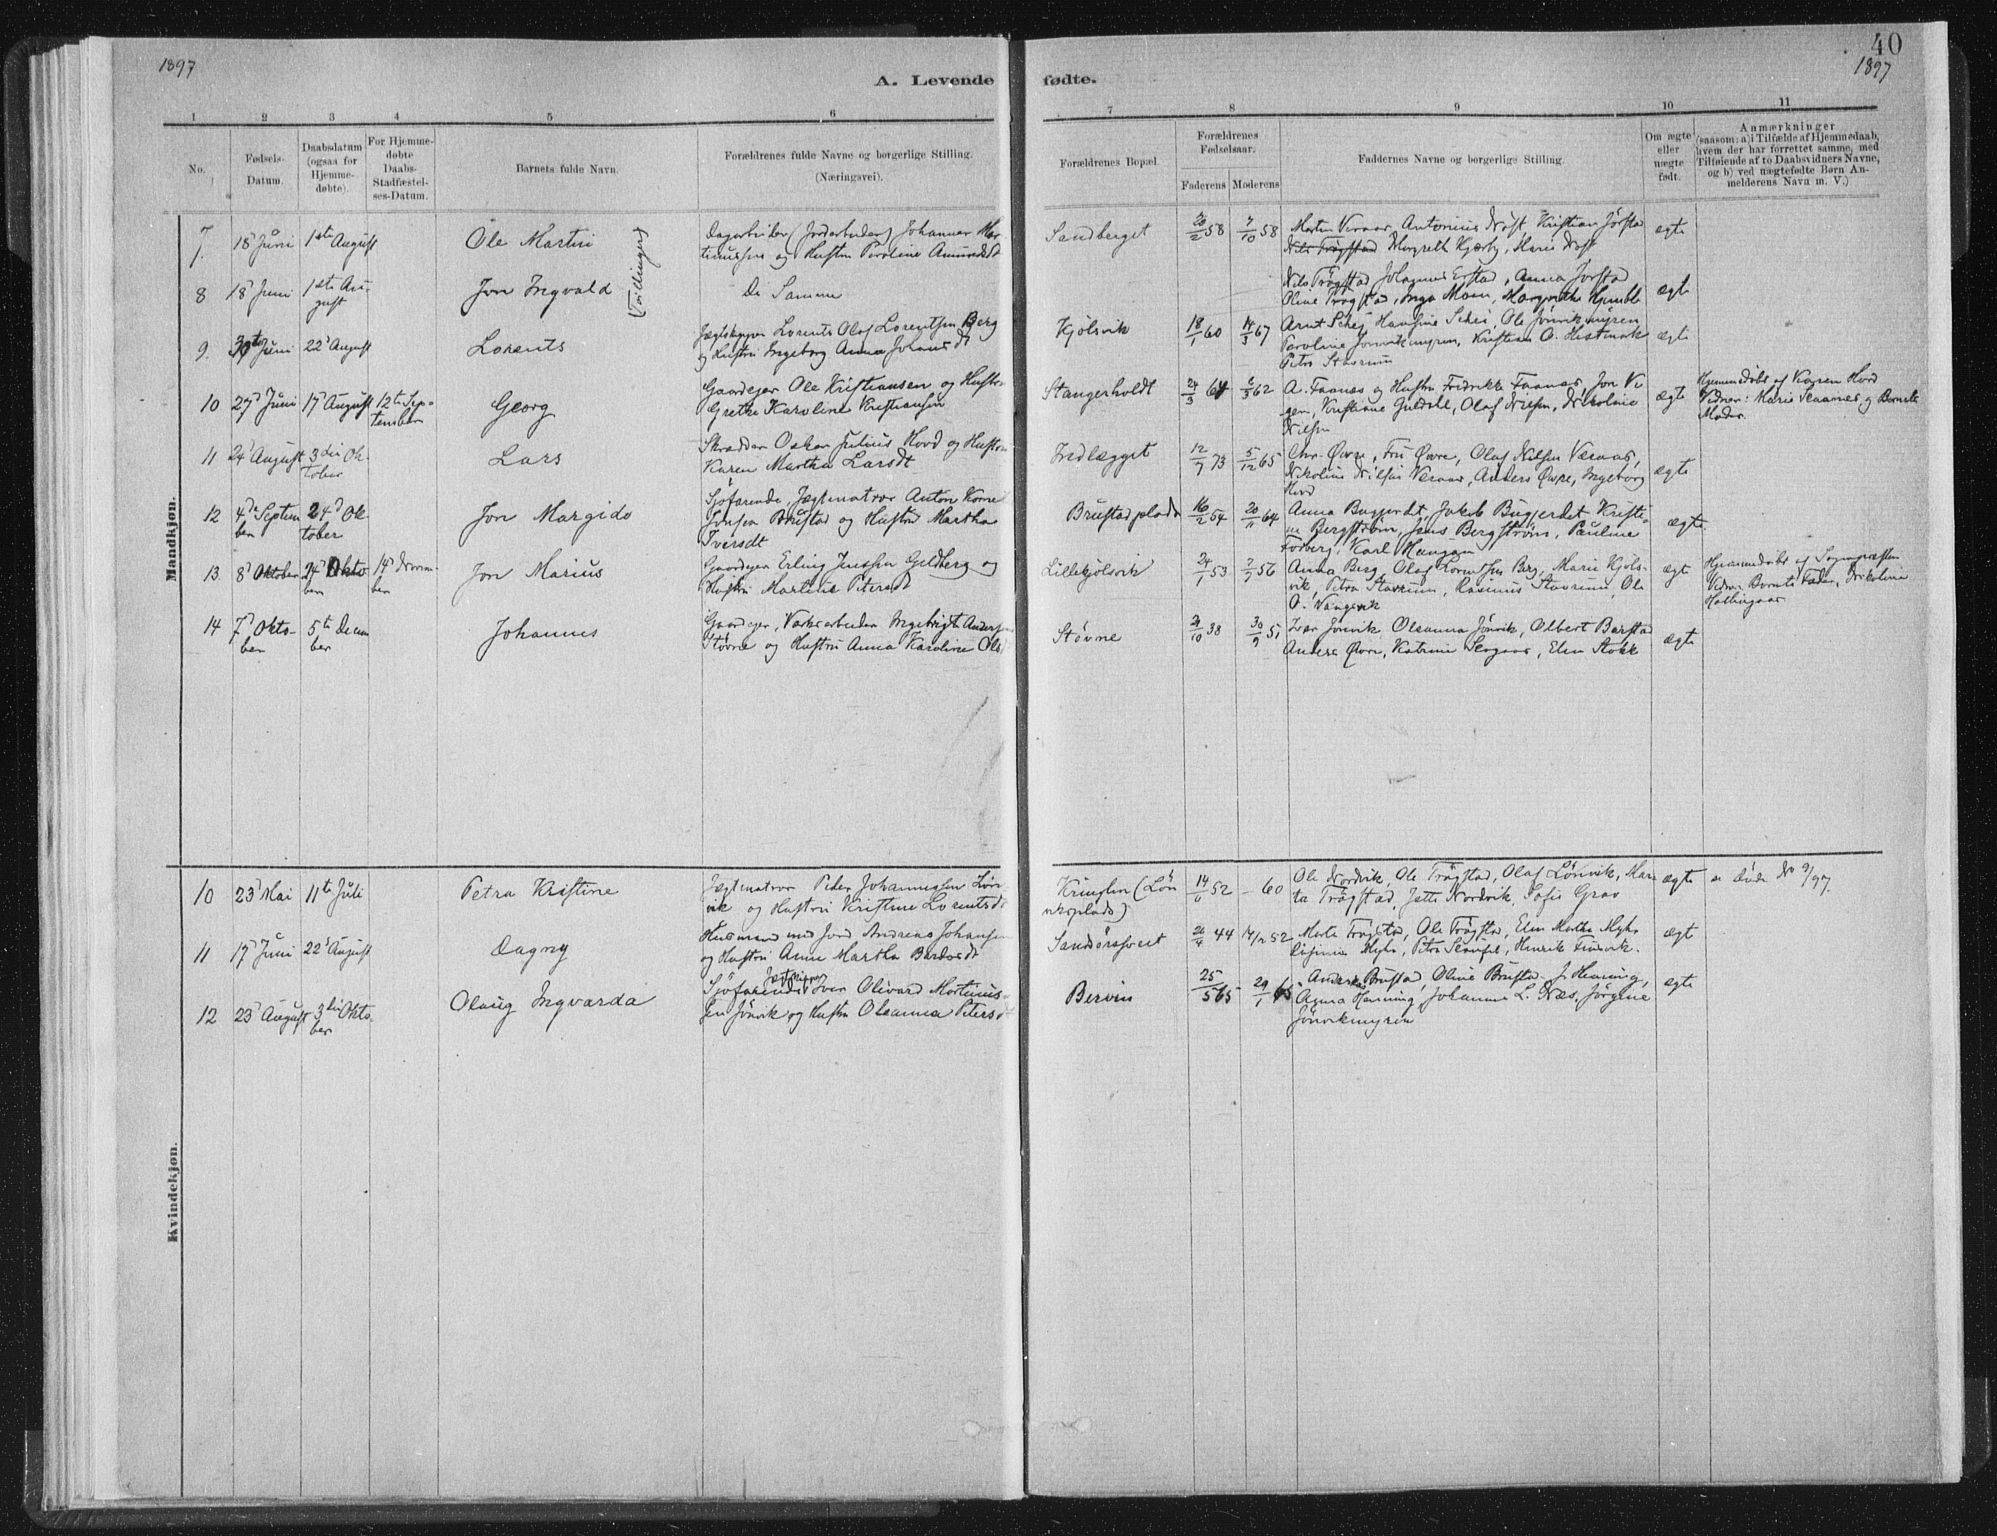 1897
A. Levende fødte.
40
1897
1 2 3 4 5 6 7 8 9 10 11
No.
Fødsels-Datum.
Daabsdatum (ogsaa for Hjemme-døbte).
For Hjemme-døbte Daabs-Stadfæstel-ses-Datum.
Barnets fulde Navn.
Forældrenes fulde Navne og borgerlige Stilling. (Næringsvei).
Forældrenes Bopæl.
Forældrenes Fødselsaar.
Faderens Moderens
Faddernes Navne og borgerlige Stilling.
Om ægte eller uægte født.
Anmærkninger (saasom: a) i Tilfælde af Hjemmedaab, hvem der har forrettet samme, med Tilføiende af to Daabsvidners Navne, og b) ved uægtefødte Børn An-melderens Navn m. V.)
Mandkjøn.
7. 18d Juni 1ste August Ole Martin (Tvillinger) Dagarbeider (Jordarbeider) Johannes Mar-
tinussen og Hustru Paroline Amundsdt
Sandberget 20/2 58 7/10 58 Morten Viraas, Antonius Høst, Kristian Jørstad
Nils Trøgstad Margreth Kjærby, Maria Høst
ægte
8 18d Juni 1ste Au-
gust Jon Ingvald De Samme
Nils Trøgstad Johannes Erstad, Anna Jørstad
Oline Trøgstad, Inga Moen, Margrethe Humble
ægte
9. 30te Juni 22d August Lorents Jægtskipper Lorents Olaf Lorentsen Berg
og Hustru Ingeborg Anna Johansdt
Kjølsvik 18/1 60 14/3 67 Arnt Schei, Hansine Schei, Ole Jonvikmyren
Paroline Jonvikmyren, Kristian O. Hestnavik
Petra Stavrum
ægte
10 27d Juni 17d August 12te Sep-
tember Georg Gaardeier Ole Kristiansen og Hustru
Grethe Karoline Kristiansen
Stangerholdt 24/3 64 6/3 62 A. Faanes og Hustru Fredrikke Faanes, Jon Vi-
gen, Kristiane Guldahl, Olaf Nilsen, Nikoline
Nilsen
ægte Hjemmedøbt af Karen Hovd
Vidner: Marie Skaanes og Barnets
Moder.
11 24d August 3die Ok-
tober Lars Skrædder Oskar Julius Hovd og Hustru
Karen Martha Larsdt
Indlægget 12/7 73 5/12 65 Chr. Øvre, Fru Øvre, Olaf Nilsen Veraas,
Nikoline Nilsen Veraas, Anders Øvre, Ingeborg
Hovd
ægte
12 4de Septem
ber 24d Ok-
tober Jon Margido Sjøfarende, Jægtmatros Anton Korne
Jensen Brustad og Hustru Martha
Iversdt
Brustadplads 16/2 54 20/11 64 Anna Buggerdet, Jakob Buggerdet Kristi-
ne Bergstrøm, Jens Bergstrøm, Pauline
Forberg, Karl Haugan
ægte
13. 8d Oktober 24d Okto-
ber 14d Novem-
ber Jon Marius Gaardeier Erling Jensen Guldberg og
Hustru Martine Petersdt
Lillekjølsvik 24/1 53 7/7 56 Anna Berg, Olaf Lorentsen Berg, Marie Kjøls-
vik, Petra Stavrum, Rasmus Stavrum, Ole
O. Vangsvik
ægte Hjemmedøbt af Sognepræsten
Vidner Barnets Fader, Nikoline
14 7d Okto-
ber 5te Decem
ber Johannes Gaardeier, Værksarbeider Ingebrigt Andersen
Støvne og Hustru Anna Karoline Ols
Støvne 21/10 38 30/9 51 Ivar Jonvik Oleanna Jonvik, Albert Barstad
Anders Øvre, Katrine Skogaas, Elen Stokk
ægte
Kvindekjøn.
10 23d Mai 11te Juli Petra Kristine Jægtmatros Peder Johannessen Løn-
vik og Hustru Kristine Lorentsdt
Kringlen (Løn
viksplads) 14/6 52 – 60 Ole Nordvik, Ole Trøgstad, Olaf Lønvik, Mare
ta Trøgstad, Jette Nordvik, Sofie Grav
ægte døde 9/97.
11 17d Juni 22d August Dagny Husmand med Jord Andreas Johansen
og Hustru Anne Martha Bardosdt
26/4 44 14/12 52 Marta Trøgstad, Ole Trøgstad, Elen Martha Myhr
Myhr, Petra Henrik Finsvik.
ægte
12 23d August 3die Okto-
ber Olaug Ingvarda Sjøfarende Jægtskipper Iver Olivard Martinus-
sen Jonvik og Hustru Oleanna Petersdt
Bervin 25/5 65 29/1 65 Anders Brustad, Oline Brustad, J. Henning,
Agnna Henning, Johanna L. Næs, Jørgine
Jonvikmyren
ægte